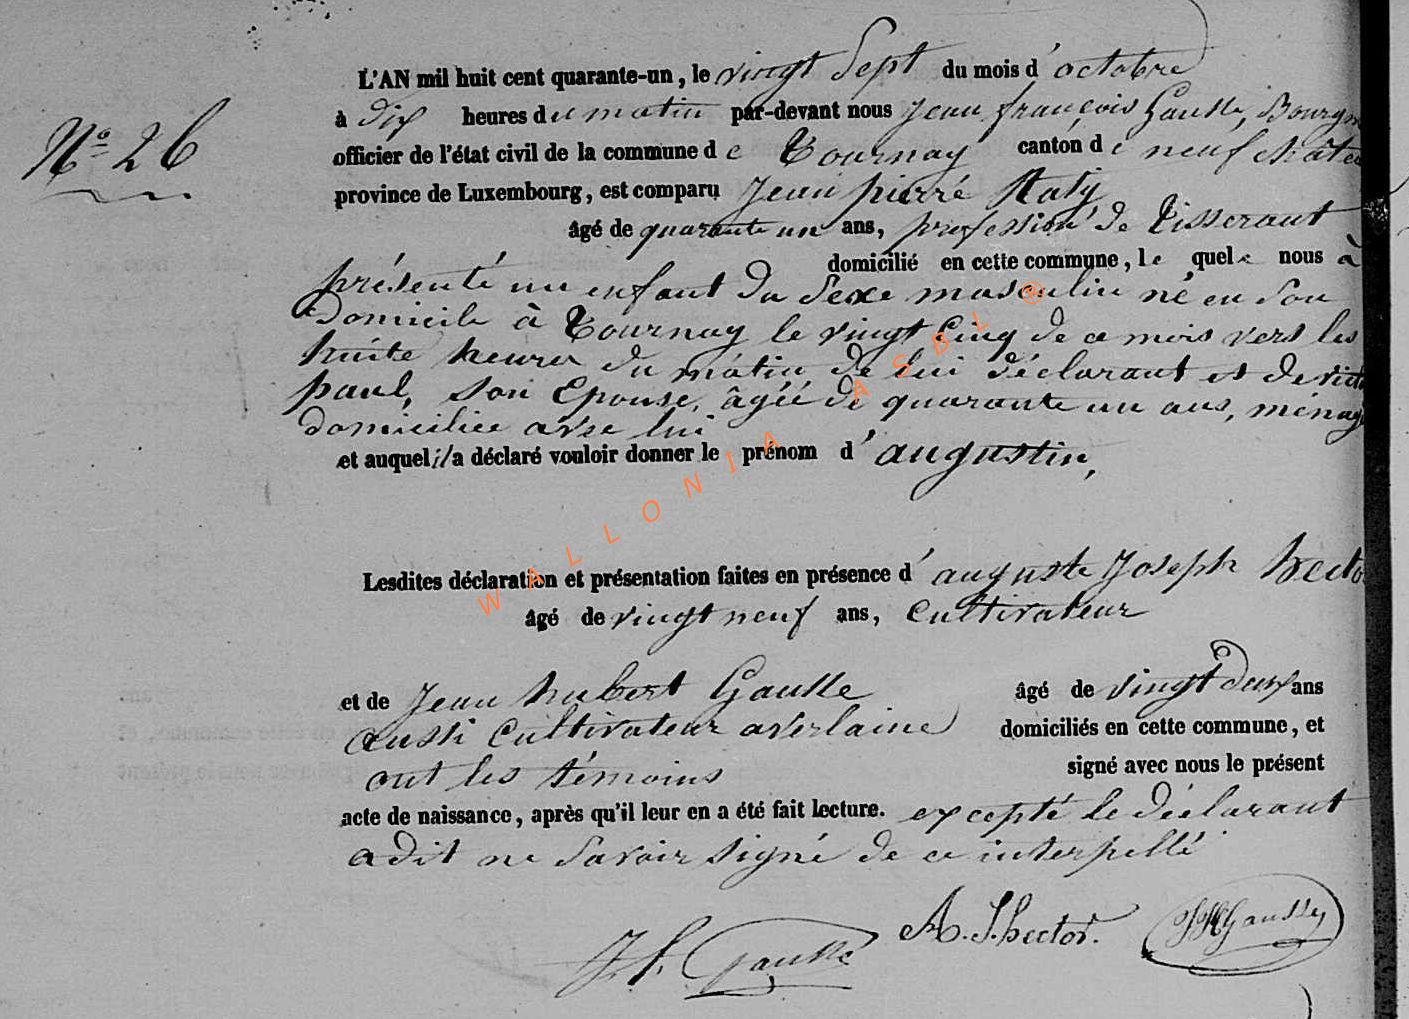 L'AN mil huit cent quarante-un, le vingt Sept du mois d'octobre
N° 26
à dix heures du matin par-devant nous Jean françois Gausse, Bourgm
officier de l'état civil de la commune de Tournay canton de neufchâte
province de Luxembourg, est comparu Jean pierre
âgé de quarante un ans, profession de Tisserant
domicilié en cette commune, le quel nous à
présenté un enfant du Sexe masculin né en Son
Domicile à Tournay le vingt Cinq de ce mois vers les
huite heures du matin de lui déclarant et de
paul, Son Epouse, âgée de quarante un ans, ménag
domiciliée avec lui
et auquel il a déclaré vouloir donner le prénom d'augustin,
Lesdites déclaration et présentation faites en présence d'auguste Joseph hecto
âgé de vingt neuf ans, Cultivateur
et de Jean hubert Gausse âgé de vingt deux ans
aussi Cultivateur a verlaine domiciliés en cette commune, et
ont les témoins signé avec nous le présent
acte de naissance, après qu'il leur en a été fait lecture. excepté le déclarant
a dit ne Savoir signé de ce interpellé
J. f. Gausse A. J. hector. JHGausse
WALLONIA ASBL ®